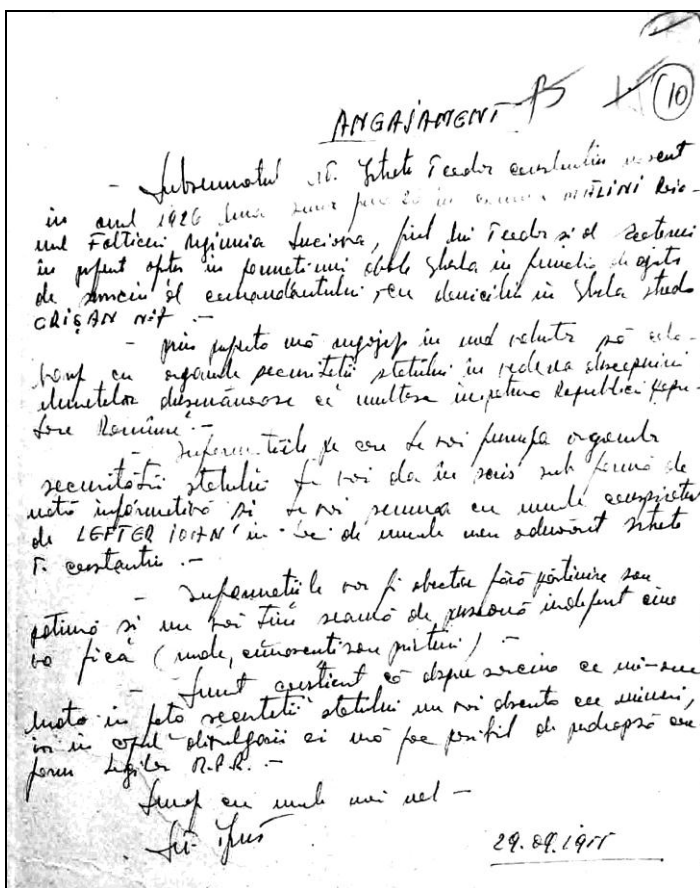 10
ANGAJAMENT
- Subsemnatul Lt. Schete Teodor Constantin născut
în anul 1926 luna ziua 26 în comuna MĂLINI Raio-
nul Fălticeni Regiunea Suceava, fiul lui Teodor și al
în prezent ofițer în penitenciarul Gherla în funcția de ofițer
de serviciu al comandantului cu domiciliu în Gherla strada
CRIȘAN
- prin prezenta mă angajez în mod să cola-
borez cu organele securității statului în vederea descoperirii
elementelor dușmănoase ce uneltesc împotriva Republicii Popu-
lare Române.-
- Informațiile pe care le voi furniza organelor
securității statului le voi da în scris sub formă de
notă informativă și le voi semna cu numele conspirativ
de LEFTER IOAN în loc de numele meu adevărat Schete
T. Constantin.-
- Informațiile vor fi obiective fără părtinire sau
patimă și nu voi ține seamă de persoană indiferent cine
va fică (rude, cunoscuți sau prieteni).-
- Sunt conștient că despre sarcina ce mi-am
luato în fața securității statului nu voi discuta cu nimeni,
iar în cazul divulgării ei mă fac pasibil de pedeapsă con
form legilor R.P.R.-
Semnez cu numele meu real -
Lt.
29.09.1955